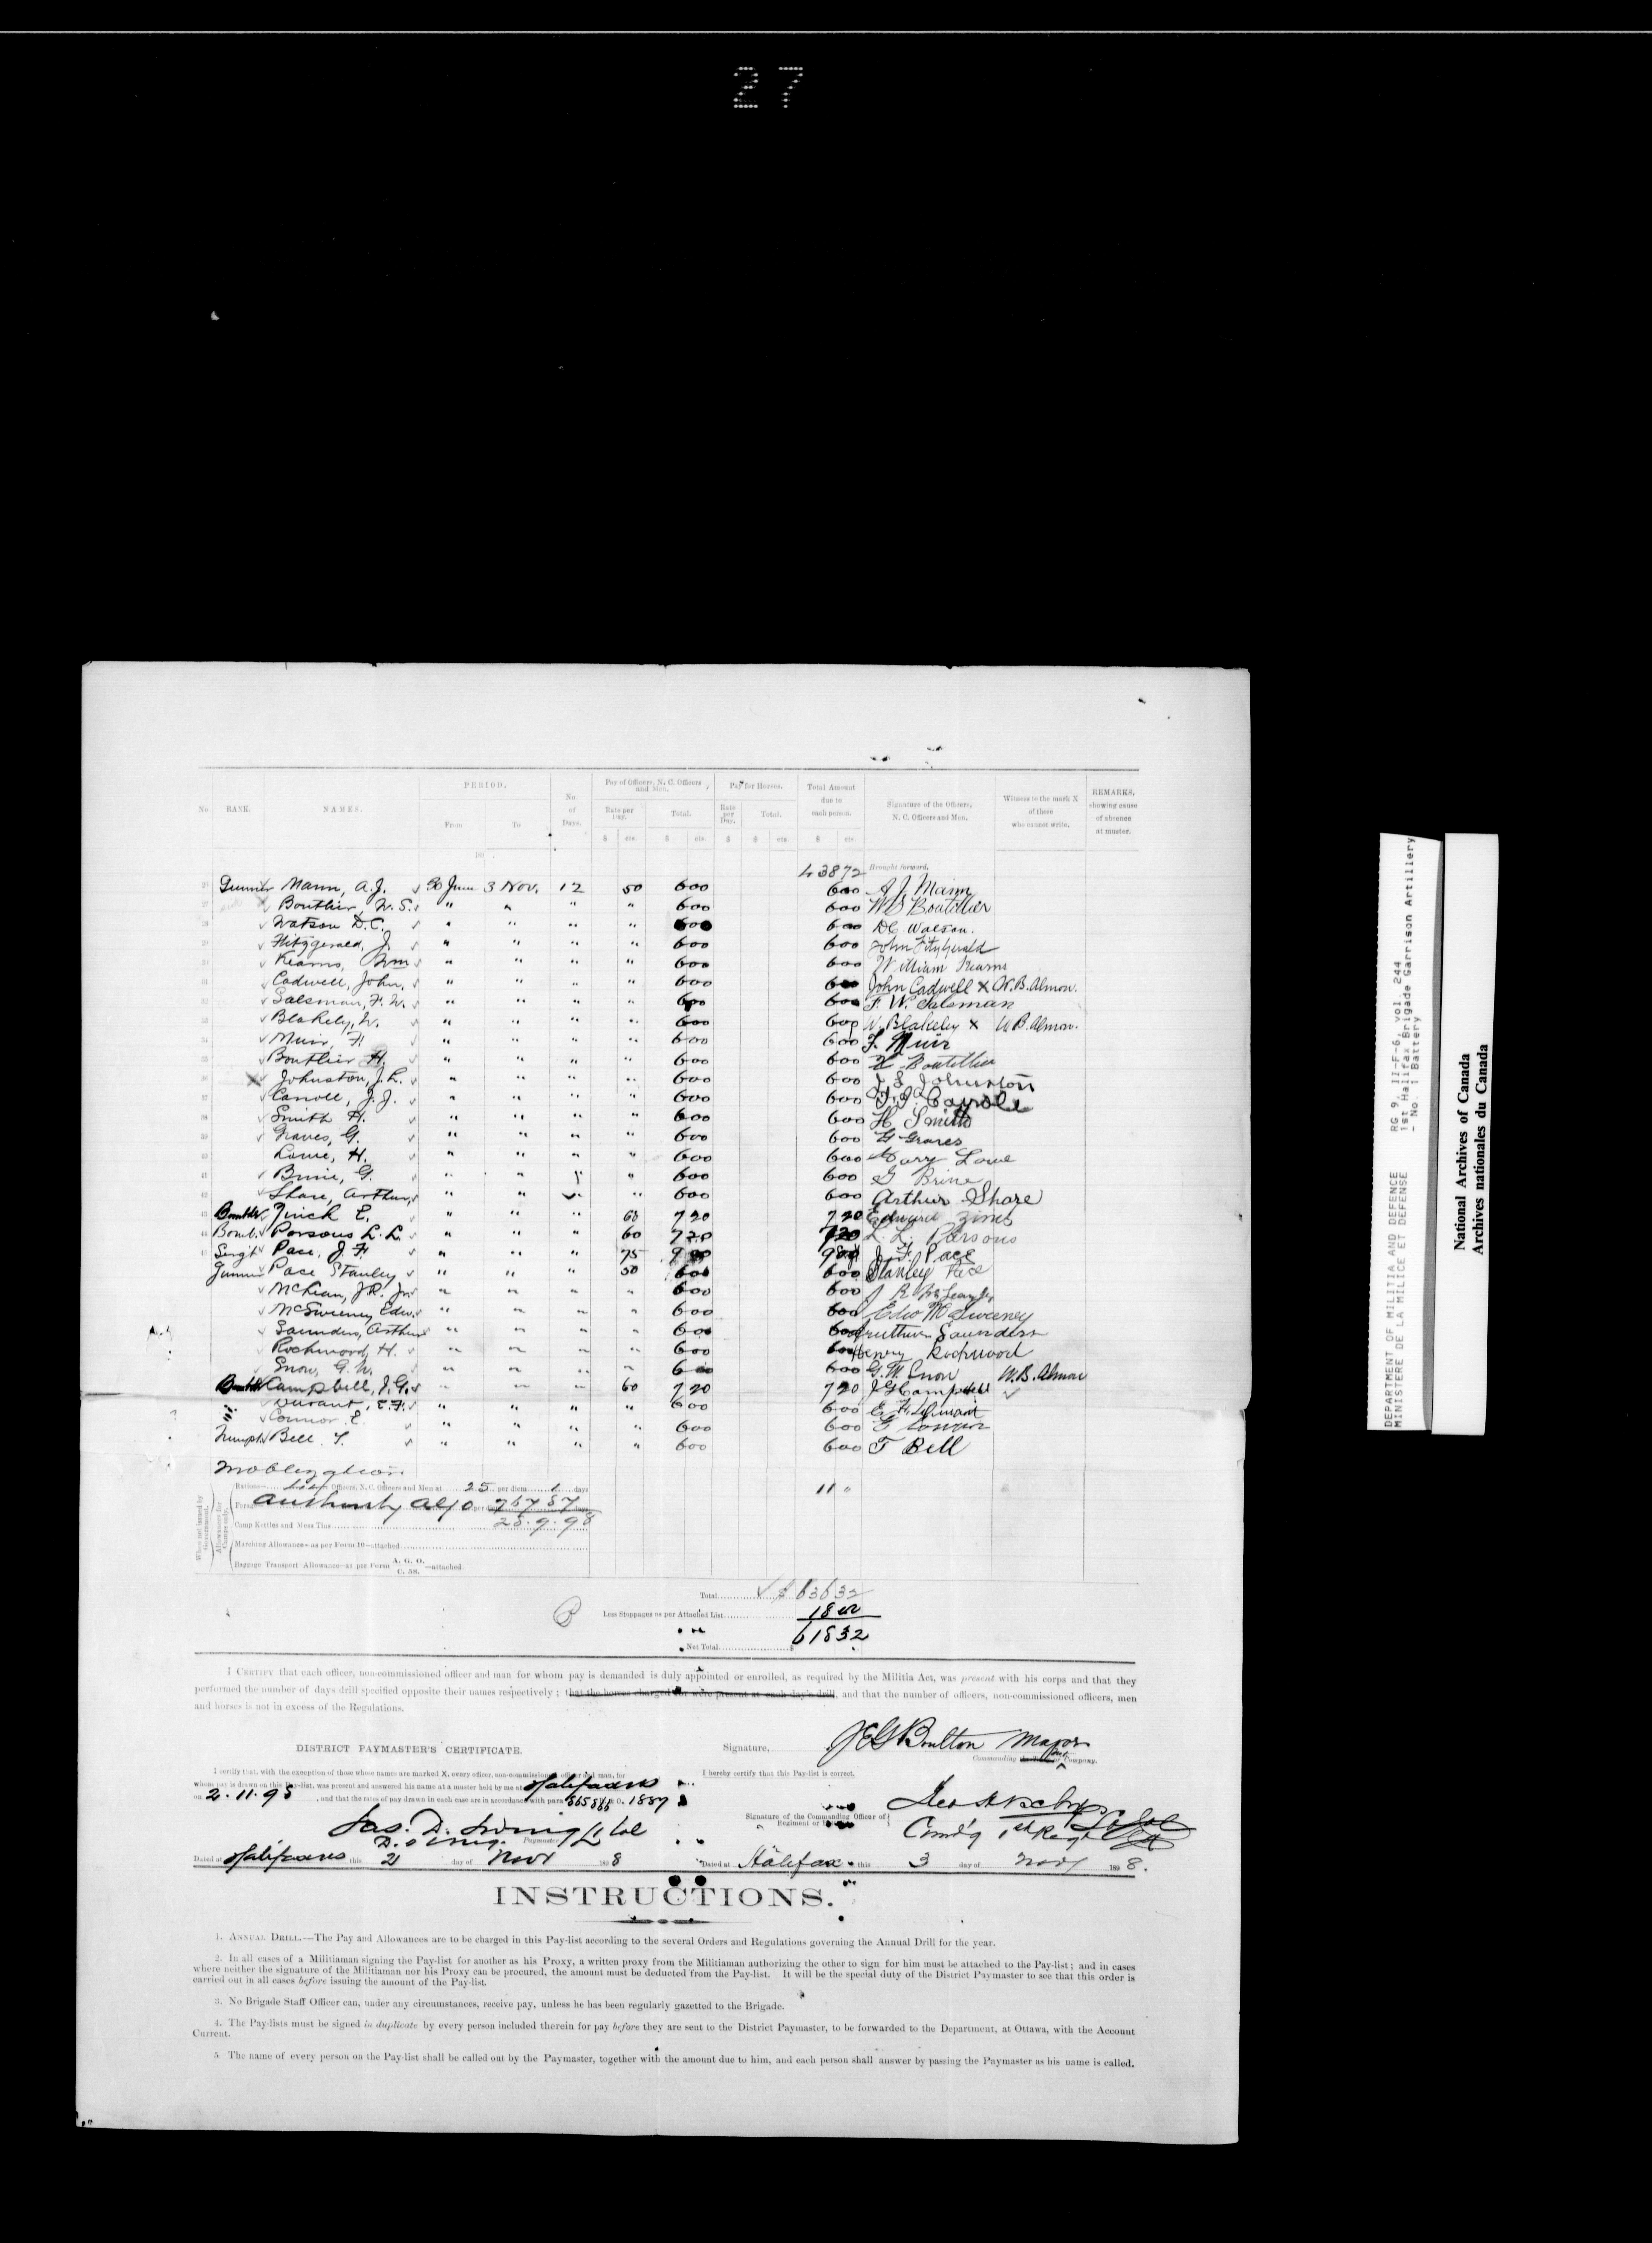 27
No RANK. NAMES. PERIOD. From To No. of Days. Pay of Officers, N. C. Officers and Men. Rate per Day. Total. Pay for Horses. Rate per Day. Total. Total Amount due to each person. Signature of the Officers, N. C. Officers and Men. Witness to the mark X of those who cannot write. REMARKS. showing cause of absence at muster.
$ cts. $ cts. $ $ cts. $ cts.
189
43872 Brought forward.
Gunner Mann, A.J. 30 June 3 Nov. 12 50 600 600 A J Mann
Boutlier, W. S. " " " " 600 600 W S Boutillier
Watson D.C. " " " " 600 600 D C Watson.
Fitzgerald, J. " " " " 600 600 John Fitzgerald
Kearns, Wm " " " " 600 600 William Kearns
Cadwell, John, " " " " 600 600 John Cadwell X W. B. Almon.
Salsman, F. W. " " " " 600 600 F. W. Salsman
Blakely, W. " " " " 600 600 W. Blakeley x W B. Almon.
Muir, F. " " " " 600 600 F. Muir
Boutlier H. " " " " 600 600 H Boutillier
Johnston, J. L. " " " " 600 600 J L Johnston
Carroll, J. J. " " " " 600 600 J. J. Carroll
Smith H. " " " " 600 600 H Smith
Graves, G. " " " " 600 600 G Graves
Lowe, H. " " " " 600 600 Harry Lowe
Brine, G. " " " " 600 600 G Brine
Share, Arthur, " " " " 600 600 Arthur Share
Bombdr Zinck E. " " " 60 720 720 Edward Zinck
Bomb. Parsons L. L. " " " 60 720 720 L. L. Parsons
Sergt Pace, J. F. " " " 75 900 900 J. F. Pace
Gunner Pace Stanley " " " 50 600 600 Stanley Pace
McLean, J. R. Jr " " " " 600 600 J R McLean Jr
McSweeney Edw. " " " " 600 600 Edw McSweeney
Saunders, Arthur " " " " 600 600 Arthur Saunders
Rockwood, H. " " " " 600 600 Henry Rockwood
Snow, G. W. " " " " 600 600 G. W. Snow W. B. Almon
Bombdr Campbell, J. G. " " " 60 720 720 J G Campbell
Durant, E. F. " " " " 600 600 E. F. Durant
Connor E. " " " " 600 600 E Connor
Trumptr Bell T. " " " " 600 600 T Bell
Mobilization
Rations— Officers, N. C. Officers and Men at 25 per diem 1 days 11 "
Authority 26757
Camp Kettles and Mess Tins 28.9.98
Marching Allowance—as per Form 10—attached
Baggage Transport Allowance—as per Form A. G. O. C. 58. —attached.
When not issued by Government.
Allowances for Camps only.
Total $ 63632
B Less Stoppages as per Attached List 18 00
Net Total 61832
I CERTIFY that each officer, non-commissioned officer and man for whom pay is demanded is duly appointed or enrolled, as required by the Militia Act, was present with his corps and that they
performed the number of days drill specified opposite their names respectively ; that the horses charged for were present at each day's drill, and that the number of officers, non-commissioned officers, men
and horses is not in excess of the Regulations.
DISTRICT PAYMASTER'S CERTIFICATE.
Signature, Boulton Major
Commanding Company.
I certify that, with the exception of those whose names are marked X, every officer, non-commissioned officer and man, for
whom pay is drawn on this Pay-list, was present and answered his name at a muster held by me at Halifax
on 2.11.98, and that the rates of pay drawn in each case are in accordance with para 1887
I hereby certify that this Pay-list is correct.
Jas. D. Irving Lt Col
Paymaster
Signature of the Commanding Officer of Regiment or
Cmd'g 1st Regt
Dated at Halifax this 2 day of Nov 1898
Dated at Halifax this 3 day of Nov 1898.
INSTRUCTIONS.
1. ANNUAL DRILL.—The Pay and Allowances are to be charged in this Pay-list according to the several Orders and Regulations governing the Annual Drill for the year.
2. In all cases of a Militiaman signing the Pay-list for another as his Proxy, a written proxy from the Militiaman authorizing the other to sign for him must be attached to the Pay-list ; and in cases
where neither the signature of the Militiaman nor his Proxy can be procured, the amount must be deducted from the Pay-list. It will be the special duty of the District Paymaster to see that this order is
carried out in all cases before issuing the amount of the Pay-list.
3. No Brigade Staff Officer can, under any circumstances, receive pay, unless he has been regularly gazetted to the Brigade.
4. The Pay-lists must be signed in duplicate by every person included therein for pay before they are sent to the District Paymaster, to be forwarded to the Department, at Ottawa, with the Account
Current.
5 The name of every person on the Pay-list shall be called out by the Paymaster, together with the amount due to him, and each person shall answer by passing the Paymaster as his name is called.
DEPARTMENT OF MILITIA AND DEFENCE
MINISTERE DE LA MILICE ET DEFENSE
RG 9, II-F-6, vol. 244
1st Halifax Brigade Garrison Artillery
- No. 1 Battery
National Archives of Canada
Archives nationales du Canada